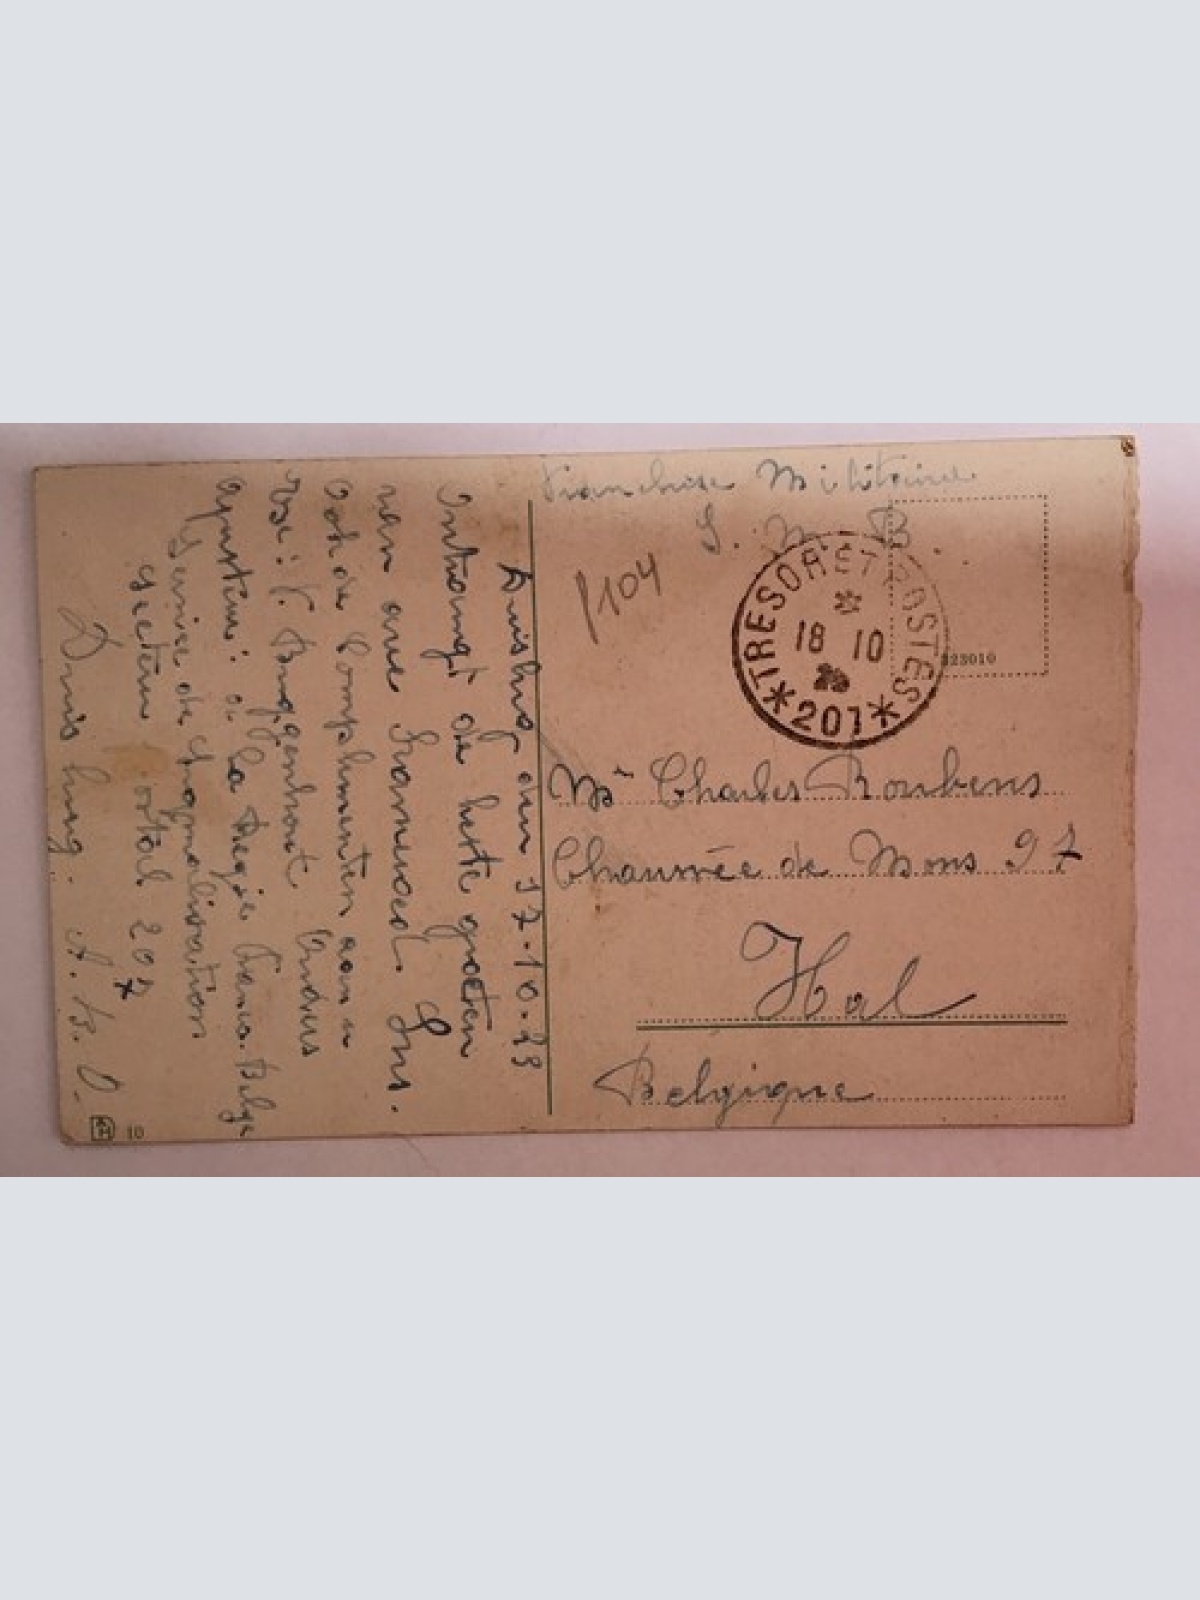 Franchise Militaire
S. M. B.
1104
TRESOR ET POSTES
18 10
*207*
323010
Mr Charles Roubens
Chaussée de Mons 97
Hal
Belgique
Duisburg den 17.10.23
Ontvangt de beste groeten
van ave
Ook de Complimenten aan
Rose: V. Buggenhout
à la Regie Franco-Belge
Service de
Secteur Postal 207
Duisburg. A. B. D.
10